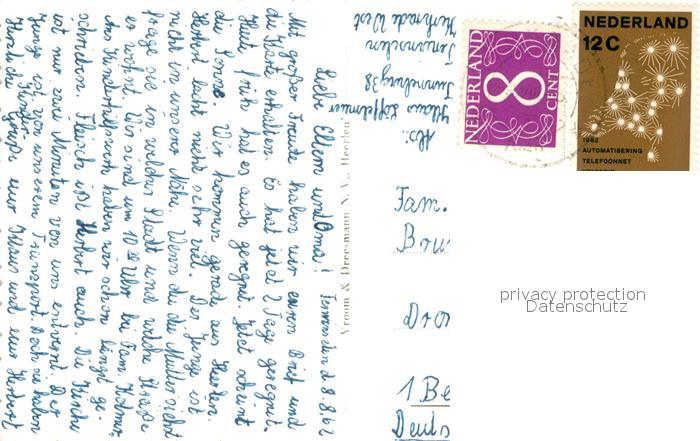 Liebe Eltern und Oma! Terwinselen d. 8.8.62
Mit großer Freude haben wir euren Brief und
die Karte erhalten. Es hat jetzt 2 Tage geregnet.
Heute früh hat es auch geregnet. Jetzt scheint
die Sonne. Wir kommen gerade aus Heerlen.
Herbert lacht nicht sehr viel. Der Junge ist
nicht in unserer Nähe. Wenn du die Mutter siehst
frage sie in welcher Stadt und welche Straße
er wohnt. Wir sind um 10 Uhr bei Fam.
das haben wir schon längst ge-
schrieben. Fleisch ißt Herbert auch. Die Kirche
ist nur zwei Minuten von uns entfernt. Der
Junge ist von unserem Transport. Doch sie haben
Herzliche Grüße euer Klaus und euer Herbert
Kinder.
Vroom & Dreesmann N.V., Heerlen
Abs.
Klaus Löffelmeier
Tunnelweg 38
Terwinselen
Kerkrade West
NEDERLAND
8
CENT
NEDERLAND
12C
1962
AUTOMATISERING
TELEFOONNET
Fam.
Bru
Dro
1 Be
Deuts
privacy protection
Datenschutz